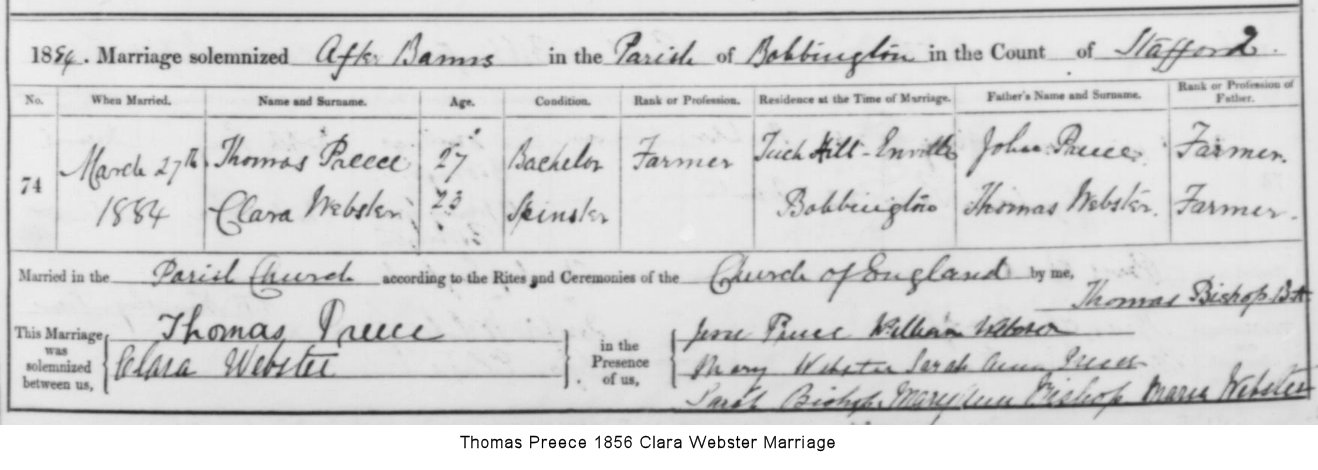 1884. Marriage solemnized After Banns in the Parish of Bobbington in the Count of Stafford.
No. When Married. Name and Surname. Age. Condition. Rank or Profession. Residence at the Time of Marriage. Father's Name and Surname. Rank or Profession of Father.
March 27th Thomas Preece 27 Bachelor Farmer Hill - Enville John Preece Farmer.
74
1884 Clara Webster 23 Spinster Bobbington Thomas Webster. Farmer.
Married in the Parish Church according to the Rites and Ceremonies of the Church of England by me,
Thomas Bishop B.A.
This Marriage was solemnized between us, Thomas Preece Clara Webster
in the Presence of us, Preece William Webster
Mary Webster Sarah Ann Preece
Sarah Bishop Mary Ann Bishop Maria Webster
Thomas Preece 1856 Clara Webster Marriage